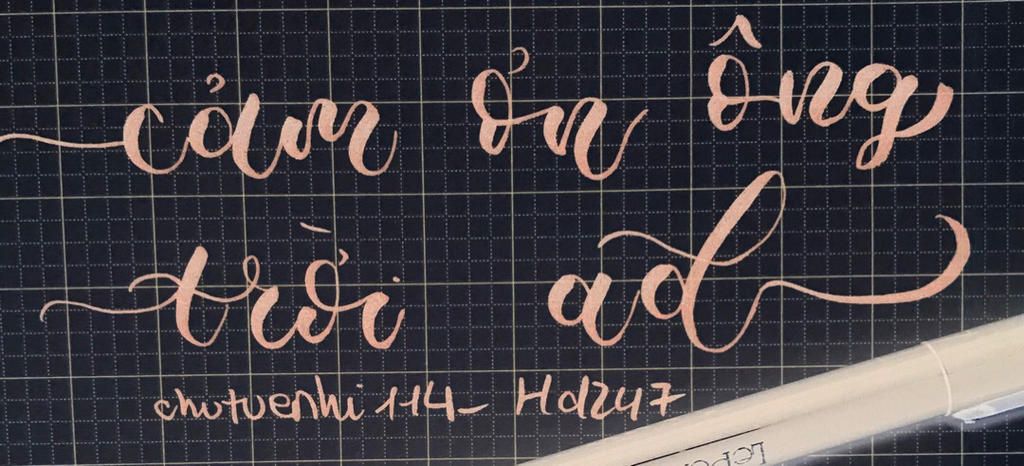 cảm ơn ông
trời ad
chutuenhi 114_ Hd247